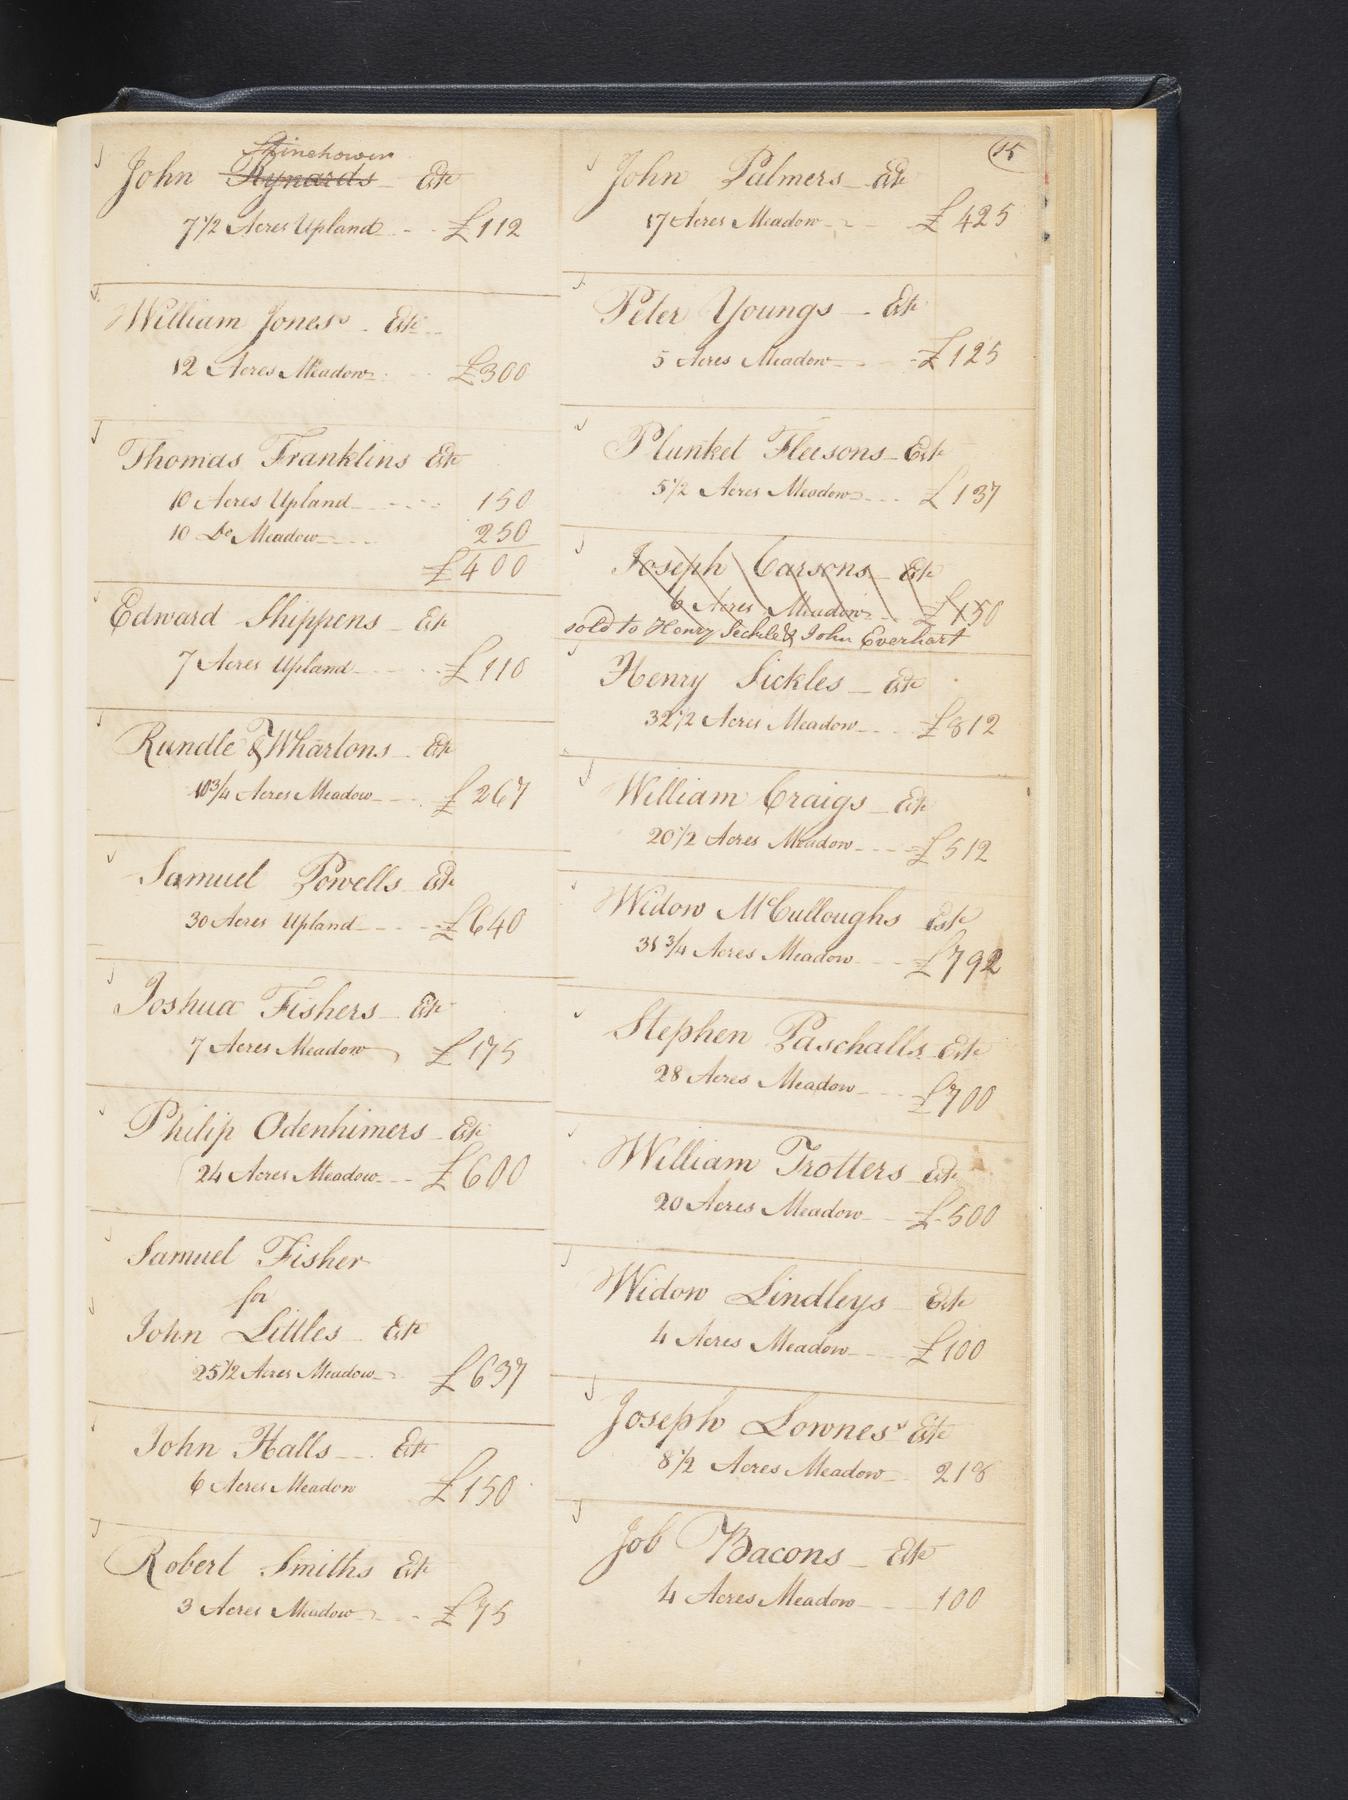 15
Stinehower
John Rynards Est
7 1/2 Acres Upland £112
William Jones's Est
12 Acres Meadow £300
Thomas Franklins Est
10 Acres Upland 150
10 Do Meadow 250
£400
Edward Shippens Est
7 Acres Upland £110
Rundle & Whartons Est
10 3/4 Acres Meadow £267
Samuel Powells Est
30 Acres Upland £640
Joshua Fishers Est
7 Acres Meadow £175
Philip Odenhimers Est
24 Acres Meadow £600
Samuel Fisher
for
John Littles Est
25 1/2 Acres Meadow £637
John Halls Est
6 Acres Meadow £150
Robert Smiths Est
3 Acres Meadow £75
John Palmers Est
17 Acres Meadow £425
Peter Youngs Est
5 Acres Meadow £125
Plunket Fleesons Est
5 1/2 Acres Meadow £137
Joseph Carsons Est
6 Acres Meadow £150
sold to Henry Seckle & John Everhart
Henry Sickles Est
32 1/2 Acres Meadow £812
William Craigs Est
20 1/2 Acres Meadow £512
Widow McCulloughs Est
31 3/4 Acres Meadow £792
Stephen Paschalls Est
28 Acres Meadow £700
William Trotters Est
20 Acres Meadow £500
Widow Lindleys Est
4 Acres Meadow £100
Joseph Lownes's Est
8 1/2 Acres Meadow 218
Job Bacons Est
4 Acres Meadow 100